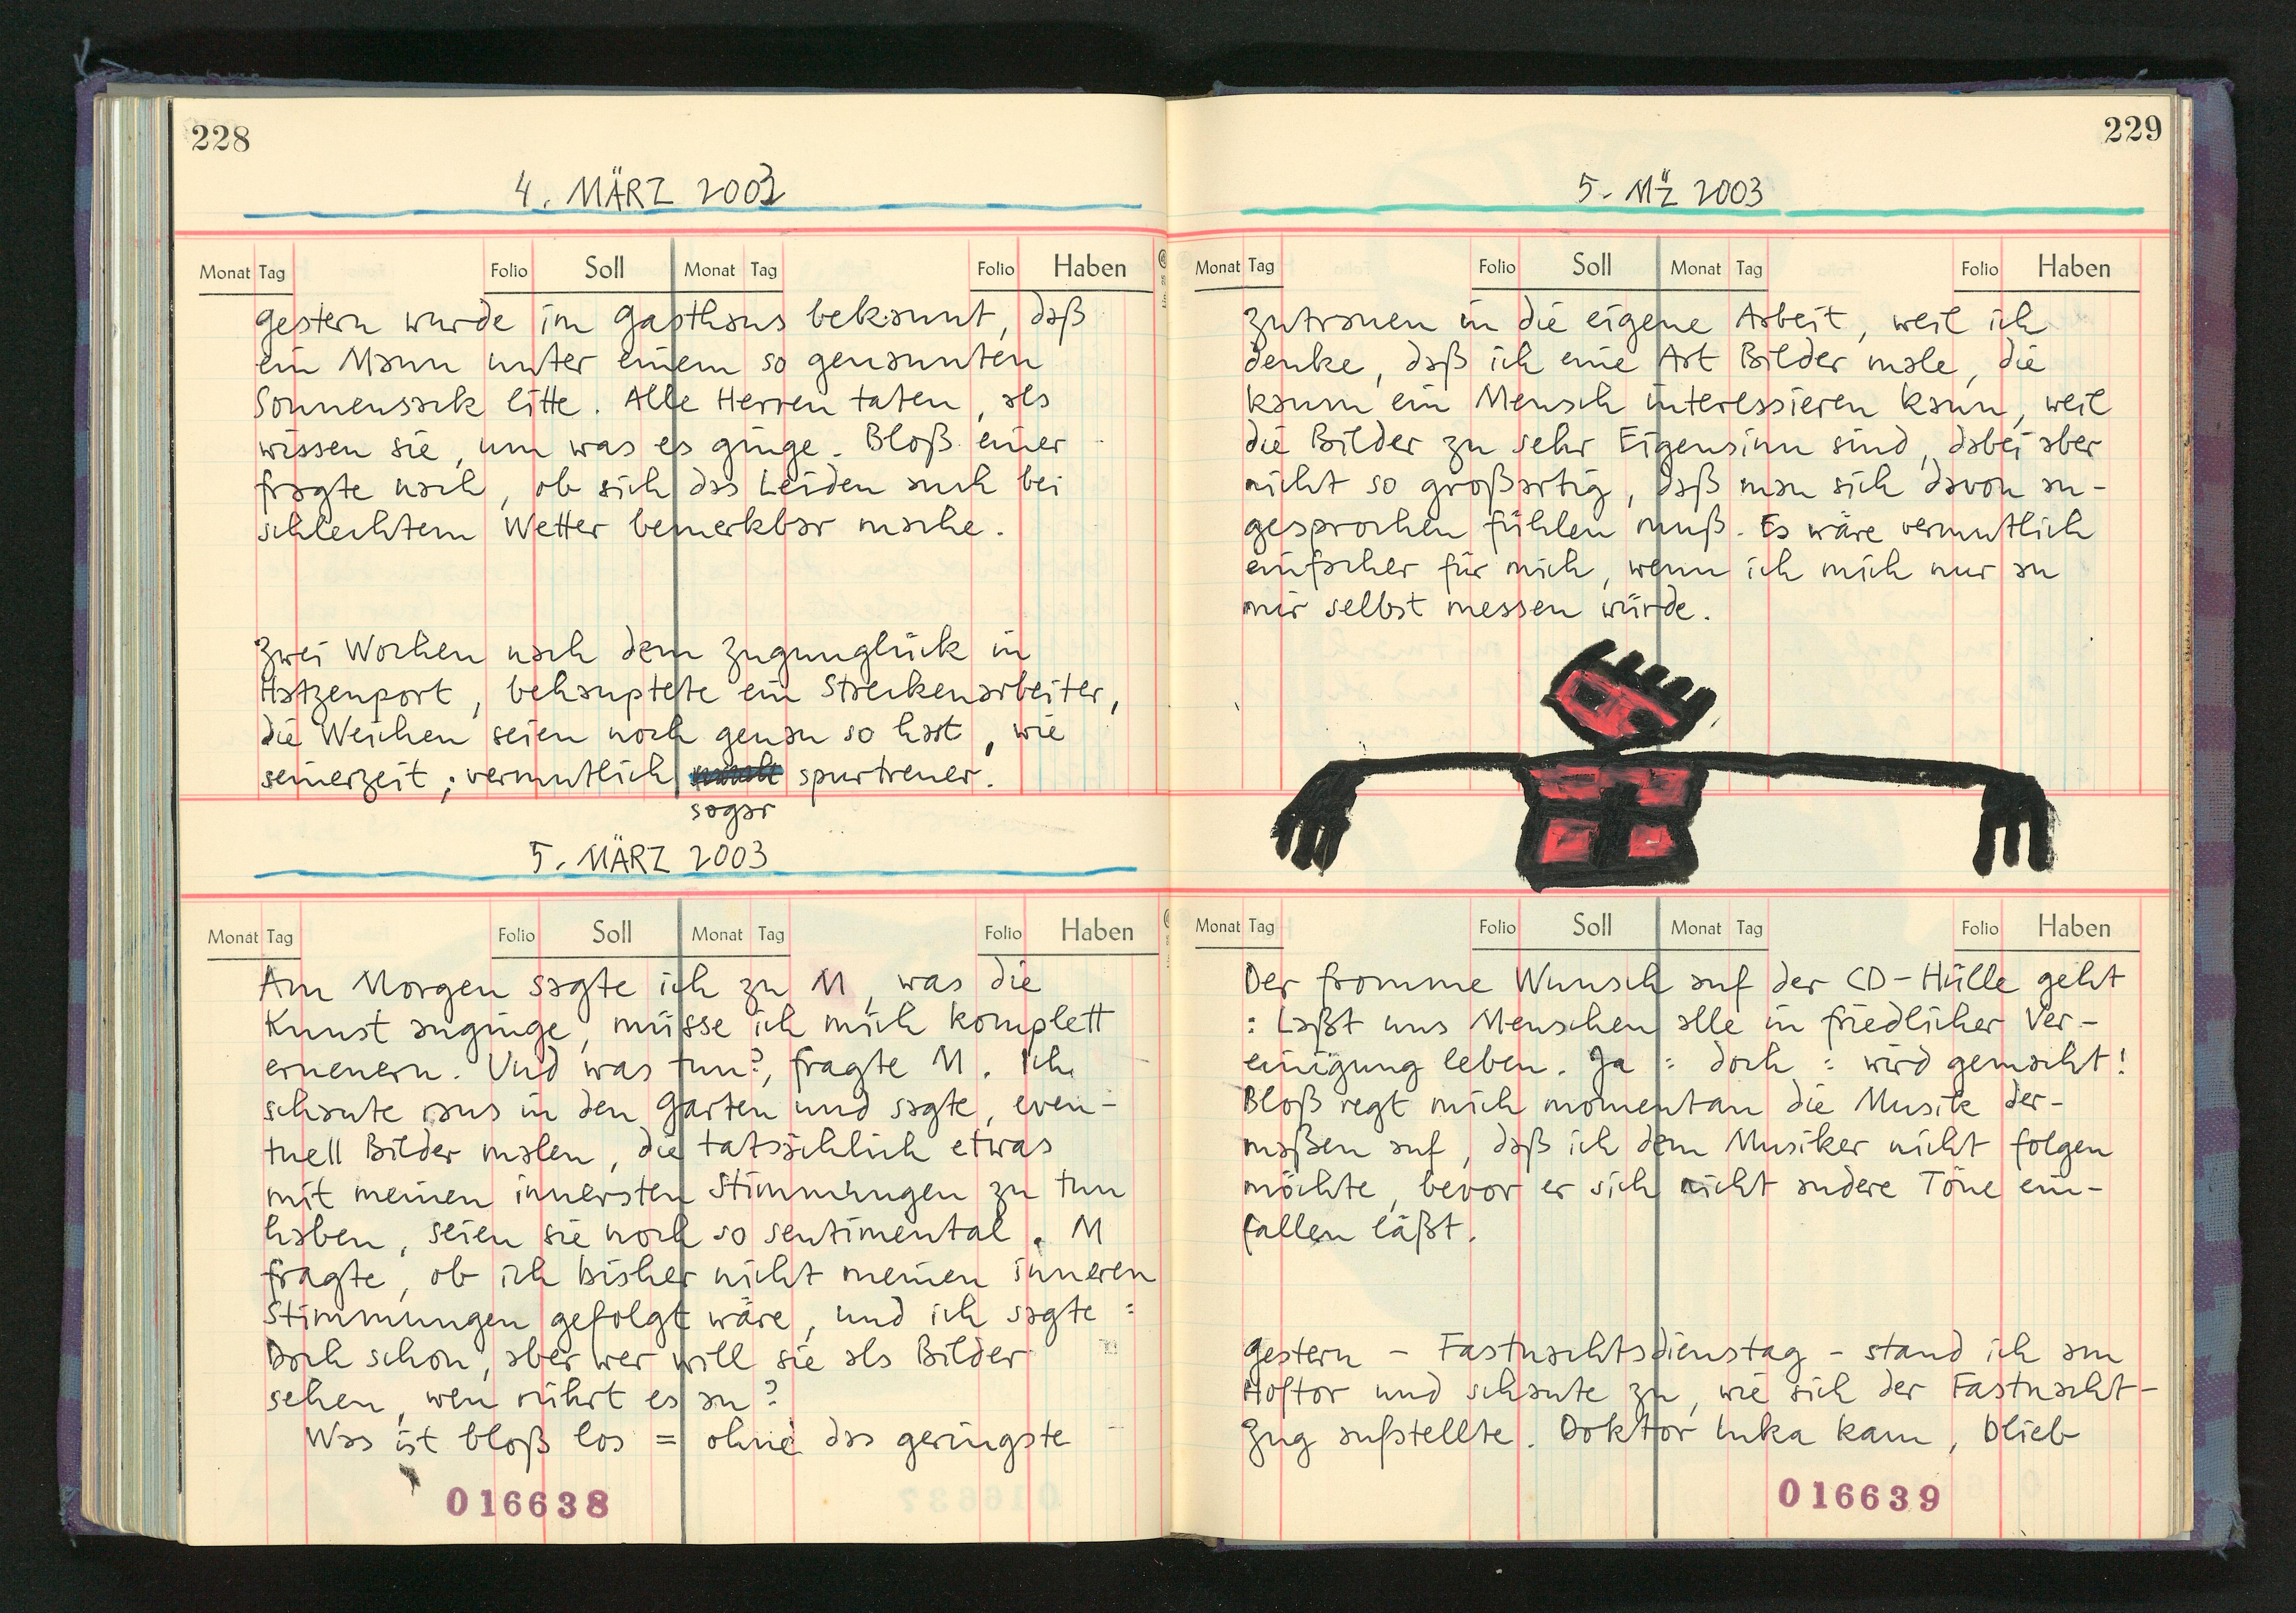 228
4. MÄRZ 2003
Monat Tag Folio Soll Monat Tag Folio Haben
Gestern wurde im Gasthaus bekannt, daß
ein Mann unter einem so genannten
Sonnensack litte. Alle Herren taten, als
wissen sie, um was es ginge. Bloß einer
fragte nach, ob sich das Leiden auch bei
schlechtem Wetter bemerkbar mache.
Zwei Wochen nach dem Zugunglück in
Hatzenport, behauptete ein Streckenarbeiter,
die Weichen seien noch genau so hart, wie
seinerzeit; vermutlich spurtreuer.
sogar
5. MÄRZ 2003
Monat Tag Folio Soll Monat Tag Folio Haben
Am Morgen sagte ich zu M, was die
Kunst anginge, müsse ich mich komplett
erneuern. Und was tun?, fragte M. Ich
schaute raus in den Garten und sagte, even-
tuell Bilder malen, die tatsächlich etwas
mit meinen innersten Stimmungen zu tun
haben, seien sie noch so sentimental. M
fragte, ob ich bisher nicht meinen inneren
Stimmungen gefolgt wäre, und ich sagte :
Doch schon, aber wer will sie als Bilder
sehen, wen rührt es an?
Was ist bloß los = ohne das geringste
016638
229
5. MÄZ 2003
Monat Tag Folio Soll Monat Tag Folio Haben
Zutrauen in die eigene Arbeit, weil ich
denke, daß ich eine Art Bilder male, die
kaum ein Mensch interessieren kann, weil
die Bilder zu sehr Eigensinn sind, dabei aber
nicht so großartig, daß man sich davon an-
gesprochen fühlen muß. Es wäre vermutlich
einfacher für mich, wenn ich mich nur an
mir selbst messen würde.
Monat Tag Folio Soll Monat Tag Folio Haben
Der fromme Wunsch auf der CD-Hülle geht
: Laßt uns Menschen alle in friedlicher Ver-
einigung leben. Ja : doch : wird gemacht!
Bloß regt mich momentan die Musik der-
maßen auf, daß ich dem Musiker nicht folgen
möchte, bevor er sich nicht andere Töne ein-
fallen läßt.
Gestern – Fastnachtsdienstag – stand ich am
Hoftor und schaute zu, wie sich der Fastnacht-
zug aufstellte. Doktor Luka kam, blieb
016639